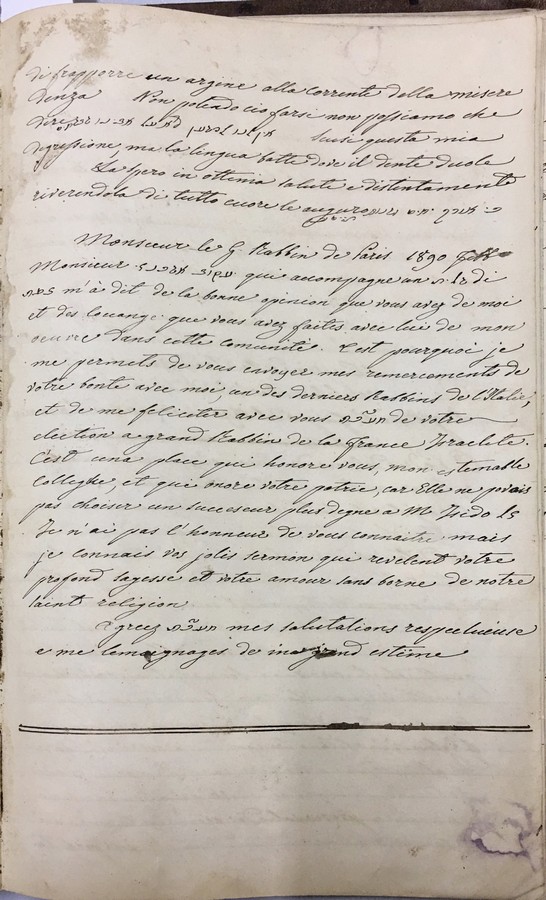 di frapporre un argine alla corrente della miscre
denza Non potendo ciò farsi non possiamo che
dire
Scusi questa mia
degressione, ma la lingua batte dove il dente duole
La spero in ottima salute e distintamente
riverendola di tutto cuore le auguro
Monsieur le G. Rabbin de Paris 1890
Monsieur qui accompagne un di
m'à dit de la bonne opinion que vous avez de moi
et des louange que vous avez faites avec lui de mon
oeuvre dans cette comunité. C'est pourquoi je
me permets de vous envoyer mes remerciments de
votre bonté avec moi, un des derniers Rabbins de l'Italie,
et de me feliciter avec vous de votre
election a grand Rabbin de la france Israelete.
C'est una place qui honore vous, mon estemable
Colleghe, et qui onore votre patrie, car Elle ne povais
pas choiser un succeseur plus degne a M. Isido
Je n'ai pas l'honneur de vous connaitre mais
je connais vos joles sermon qui revelent votre
profond sagesse et vôtre amour sans borne de notre
saint religion
Agreez mes salutations respectueuse
e me temoignages de estime